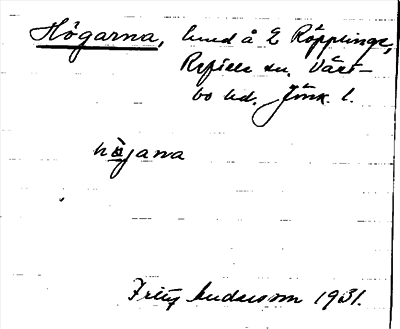 Högarna, lund å 2 Röpplinge,
Reftele sn. Väst-
bo hd. Jönk. l.
höjana
Fritz Andersson 1931.